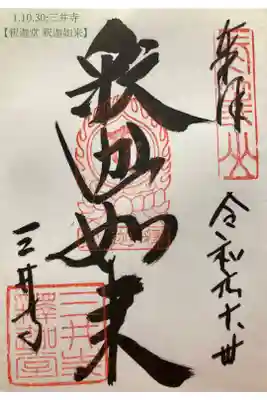 1.10.30:三井寺
【釈迦堂 釈迦如来】
奉拝
令和元十卅
釈迦如来
三井寺
三井寺
釋迦堂